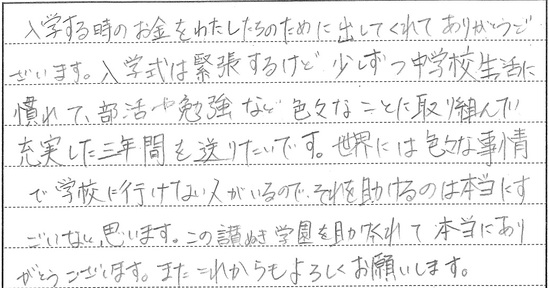 入学する時のお金をわたしたちのために出してくれてありがとうご
ざいます。入学式は緊張するけど少しずつ中学校生活に
慣れて、部活や勉強など色々なことに取り組んでい
充実した三年間を送りたいです。世界には色々な事情
で学校に行けてない人がいるので、それを助けるのは本当にす
ごいなと思います。この讃ぬき学園を助けくれて本当にあり
がとうございます。またこれからもよろしくお願いします。